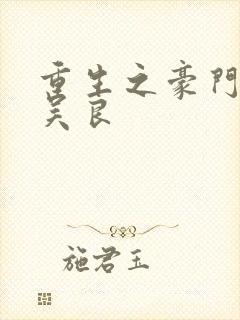 重生之豪門
吴良
施君玉